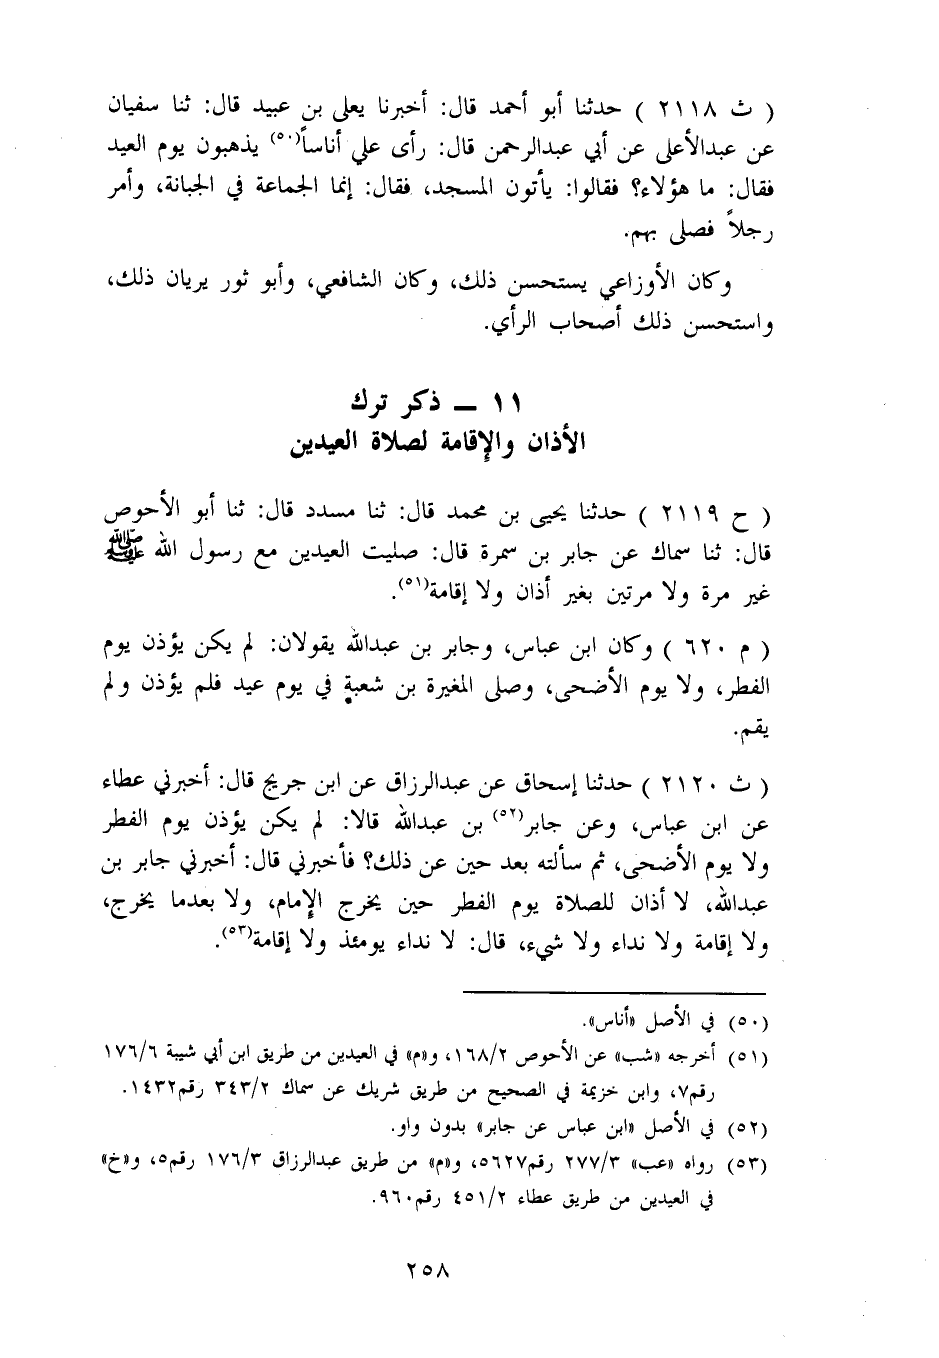 ( ث ٢١١٨ ) حدثنا أبو أحمد قال: أخبرنا يعلى بن عبيد قال: ثنا سفيان
عن عبدالأعلى عن أبي عبدالرحمن قال: رأى علي أناساً(٥٠) يذهبون يوم العيد
فقال: ما هؤلاء؟ فقالوا: يأتون المسجد، فقال: إنما الجماعة في الجبانة، وأمر
رجلاً فصلى بهم.
وكان الأوزاعي يستحسن ذلك، وكان الشافعي، وأبو ثور يريان ذلك،
واستحسن ذلك أصحاب الرأي.
١١ ــ ذكر ترك
الأذان والإقامة لصلاة العيدين
( ح ٢١١٩ ) حدثنا يحيى بن محمد قال: ثنا مسدد قال: ثنا أبو الأحوص
قال: ثنا سماك عن جابر بن سمرة قال: صليت العيدين مع رسول الله ﷺ
غير مرة ولا مرتين بغير أذان ولا إقامة(٥١).
( م ٦٢٠ ) وكان ابن عباس، وجابر بن عبدالله يقولان: لم يكن يؤذن يوم
الفطر، ولا يوم الأضحى، وصلى المغيرة بن شعبة في يوم عيد فلم يؤذن ولم
يقم.
( ث ٢١٢٠ ) حدثنا إسحاق عن عبدالرزاق عن ابن جريج قال: أخبرني عطاء
عن ابن عباس، وعن جابر(٥٢) بن عبدالله قالا: لم يكن يؤذن يوم الفطر
ولا يوم الأضحى، ثم سألته بعد حين عن ذلك؟ فأخبرني قال: أخبرني جابر بن
عبدالله، لا أذان للصلاة يوم الفطر حين يخرج الإمام، ولا بعدما يخرج،
ولا إقامة ولا نداء ولا شيء، قال: لا نداء يومئذ ولا إقامة(٥٣).
(٥٠) في الأصل «أناس».
(٥١) أخرجه «شب» عن الأحوص ١٦٨/٢، و«م» في العيدين من طريق ابن أبي شيبة ١٧٦/٦
رقم٧، وابن خزيمة في الصحيح من طريق شريك عن سماك ٣٤٣/٢ رقم١٤٣٢.
(٥٢) في الأصل «ابن عباس عن جابر» بدون واو.
(٥٣) رواه «عب» ٢٧٧/٣ رقم٥٦٢٧، و«م» من طريق عبدالرزاق ١٧٦/٣ رقم٥، و«خ»
في العيدين من طريق عطاء ٤٥١/٢ رقم٩٦٠.
٢٥٨